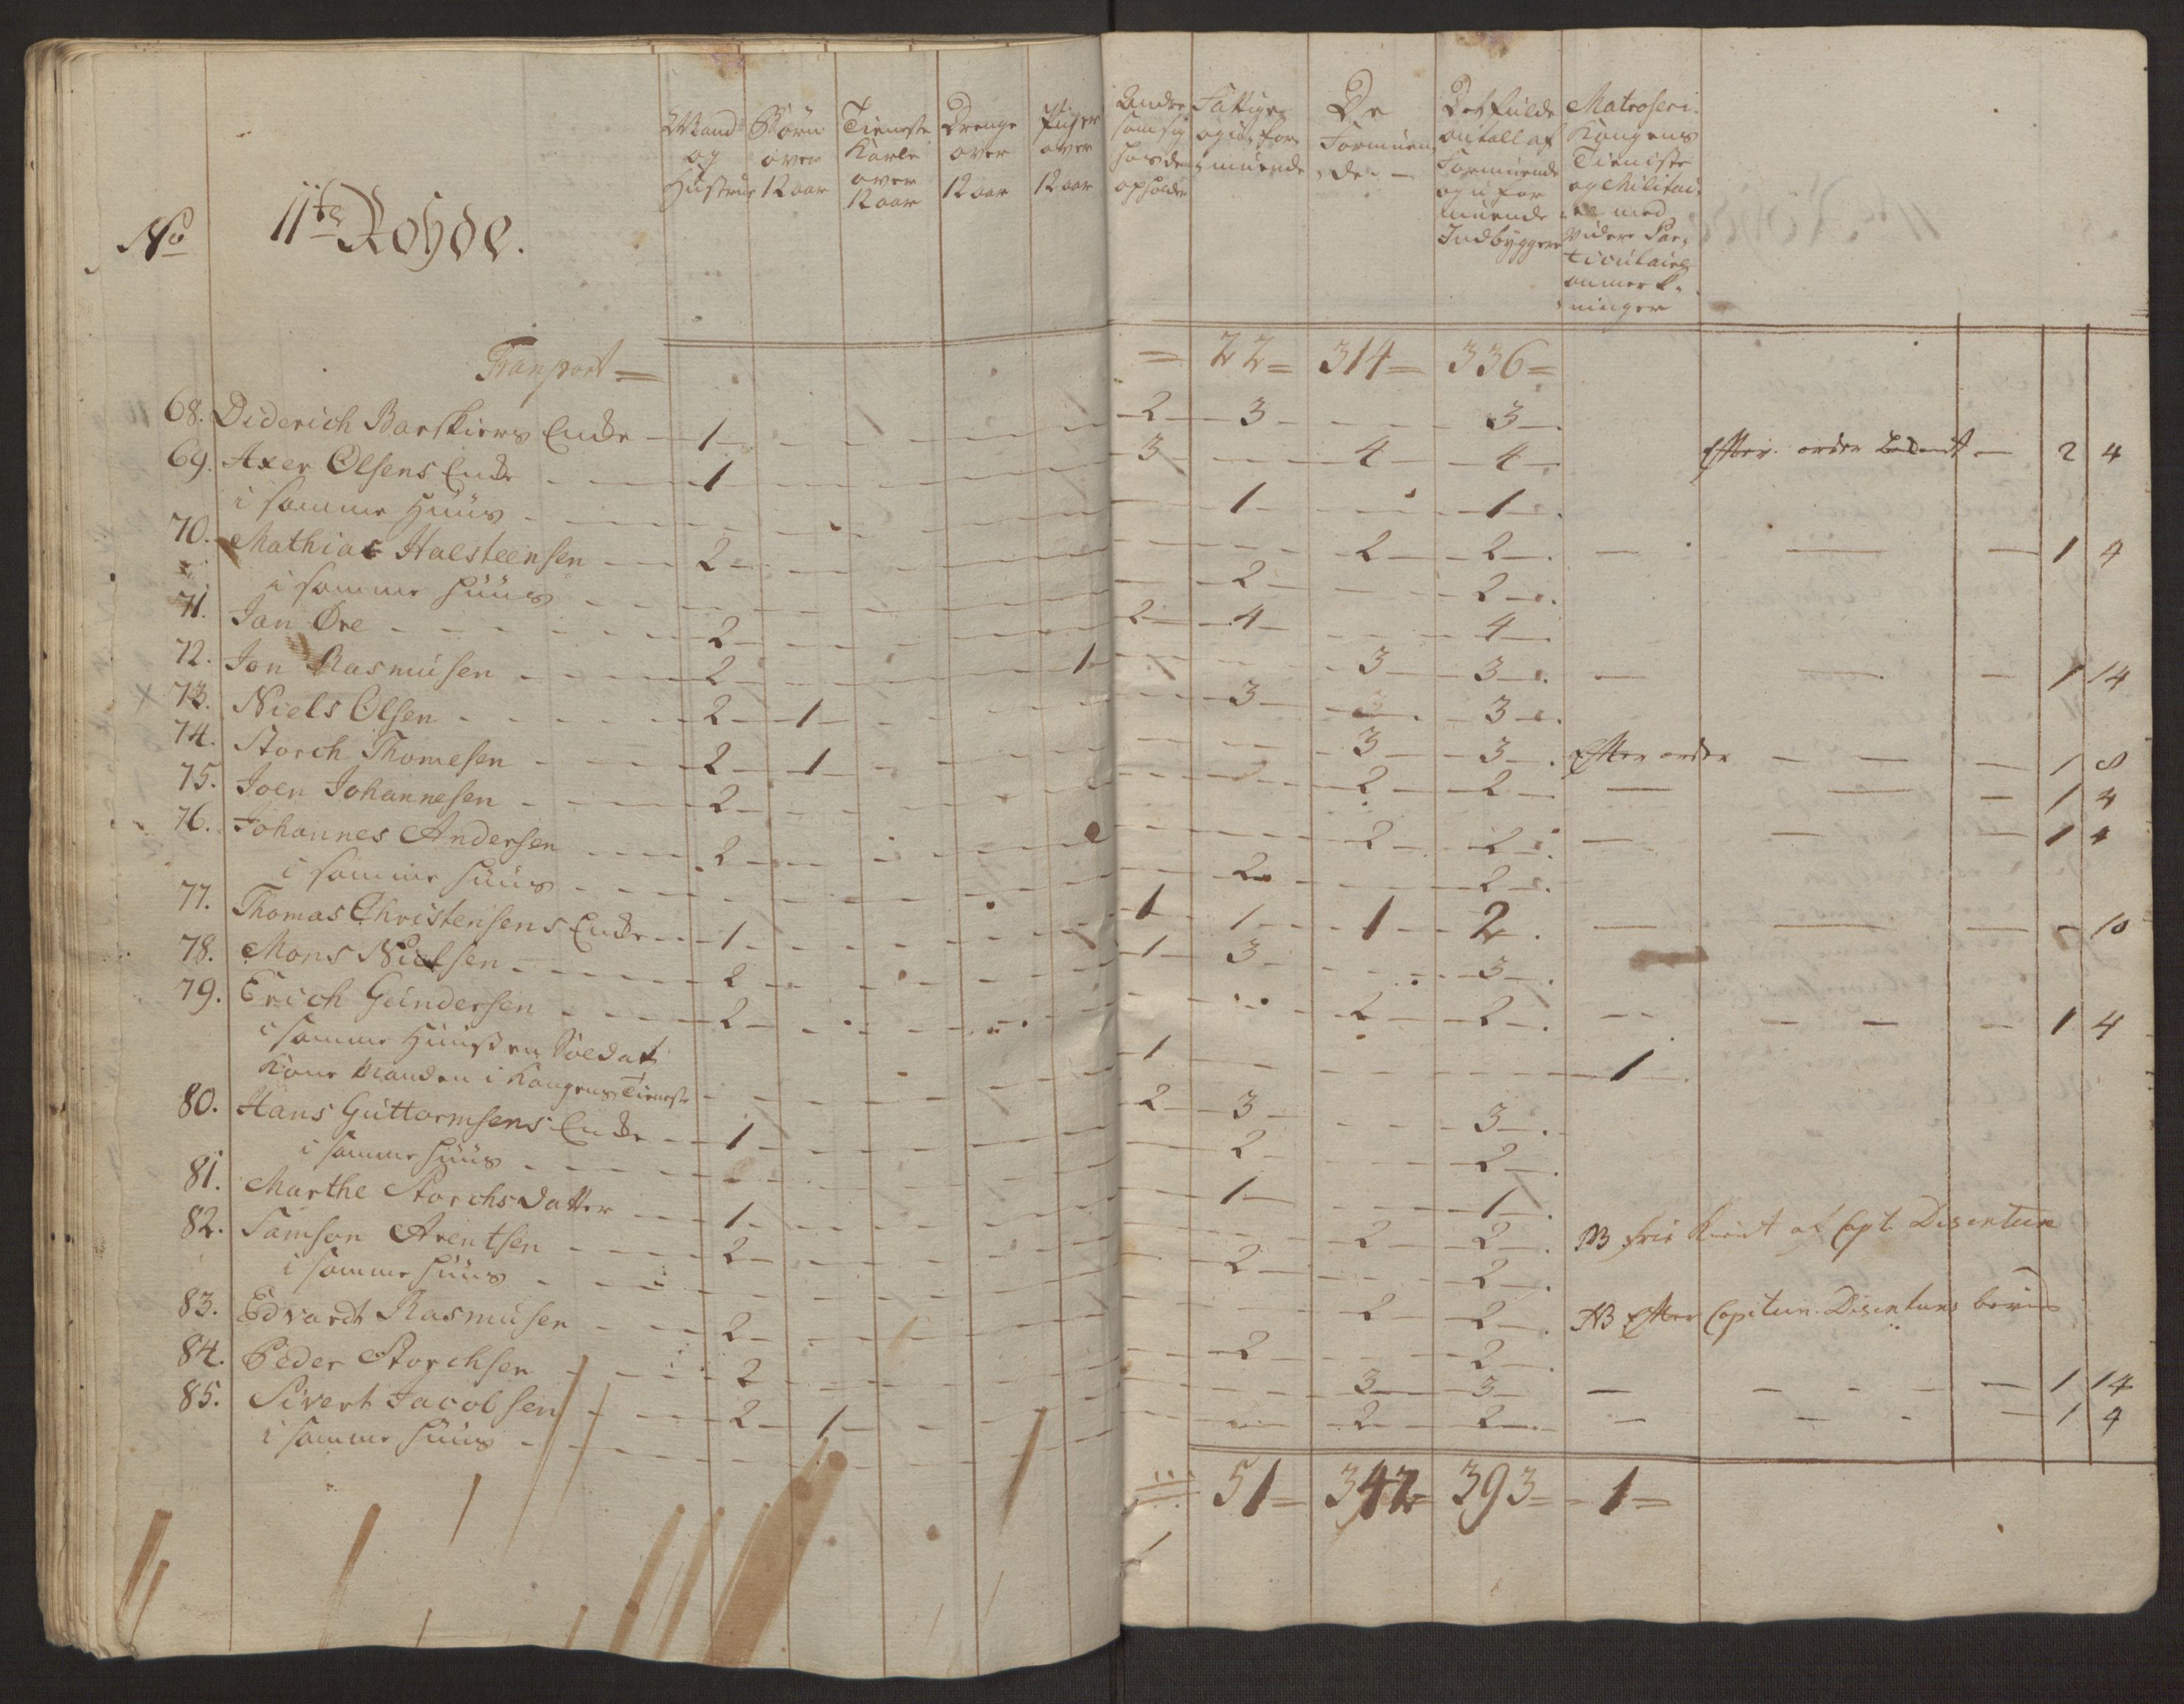 No 11te Rohde.
Mand og Hustrue
Børn over 12 aar
Tieneste Karle over 12 aar
Drenge over 12 aar
Piger over 12 aar
Andre som sig hos dem opholder
Fattige og ufor- muende
De Formuen- de
Det fulde antall af Formuende og ufor muende Indbyggere
Matroser i Kongens Tieniste og Militai- re med videre Par- ticulaire anmerk- ninger
Transport = = 22 = 314 = 336 =
68. Diderich Barskiers Enke 1 2 3 3
69. Axer Olsens Enke 1 3 4 4 Efter order 2 4
i samme Huus 1 1
70. Mathias Halsteensen 2 2 2 1 4
i samme huus 2 2
71. Jan Øre 2 2 4 4
72. Jon Rasmusen 2 1 3 3 1 14
73. Niels Olsen 2 1 3 3
74. Storch Thomesen 2 1 3 3 Efter order 1 8
75. Joen Johannesen 2 2 2 1 4
76. Johannes Andersen 2 2 2 1 4
i samme huus 2 2
77. Thomas Christensens Enke 1 1 1 1 2 10
78. Mons Nielsen 2 1 3 3
79. Erich Gundersen 2 2 2 1 4
i samme Huus en Soldat
Kone Manden i Kongens Tieneste 1 1
80. Hans Guttormsens Enke 1 2 3 3
i samme huus 2 2
81. Marthe Storchsdatter 1 1 1
82. Samson Arentsen 2 2 2 NB frie af Capt. Disentun
i samme huus 2 2
83. Edvardt Rasmusen 2 2 2 NB Efter Capitun. Disentuns beviis
84. Peder Storchsen 2 2 2
85. Sivert Jacobsen 2 1 3 3 1 14
i samme huus 2 2 1 4
51 = 342 = 393 = 1 =